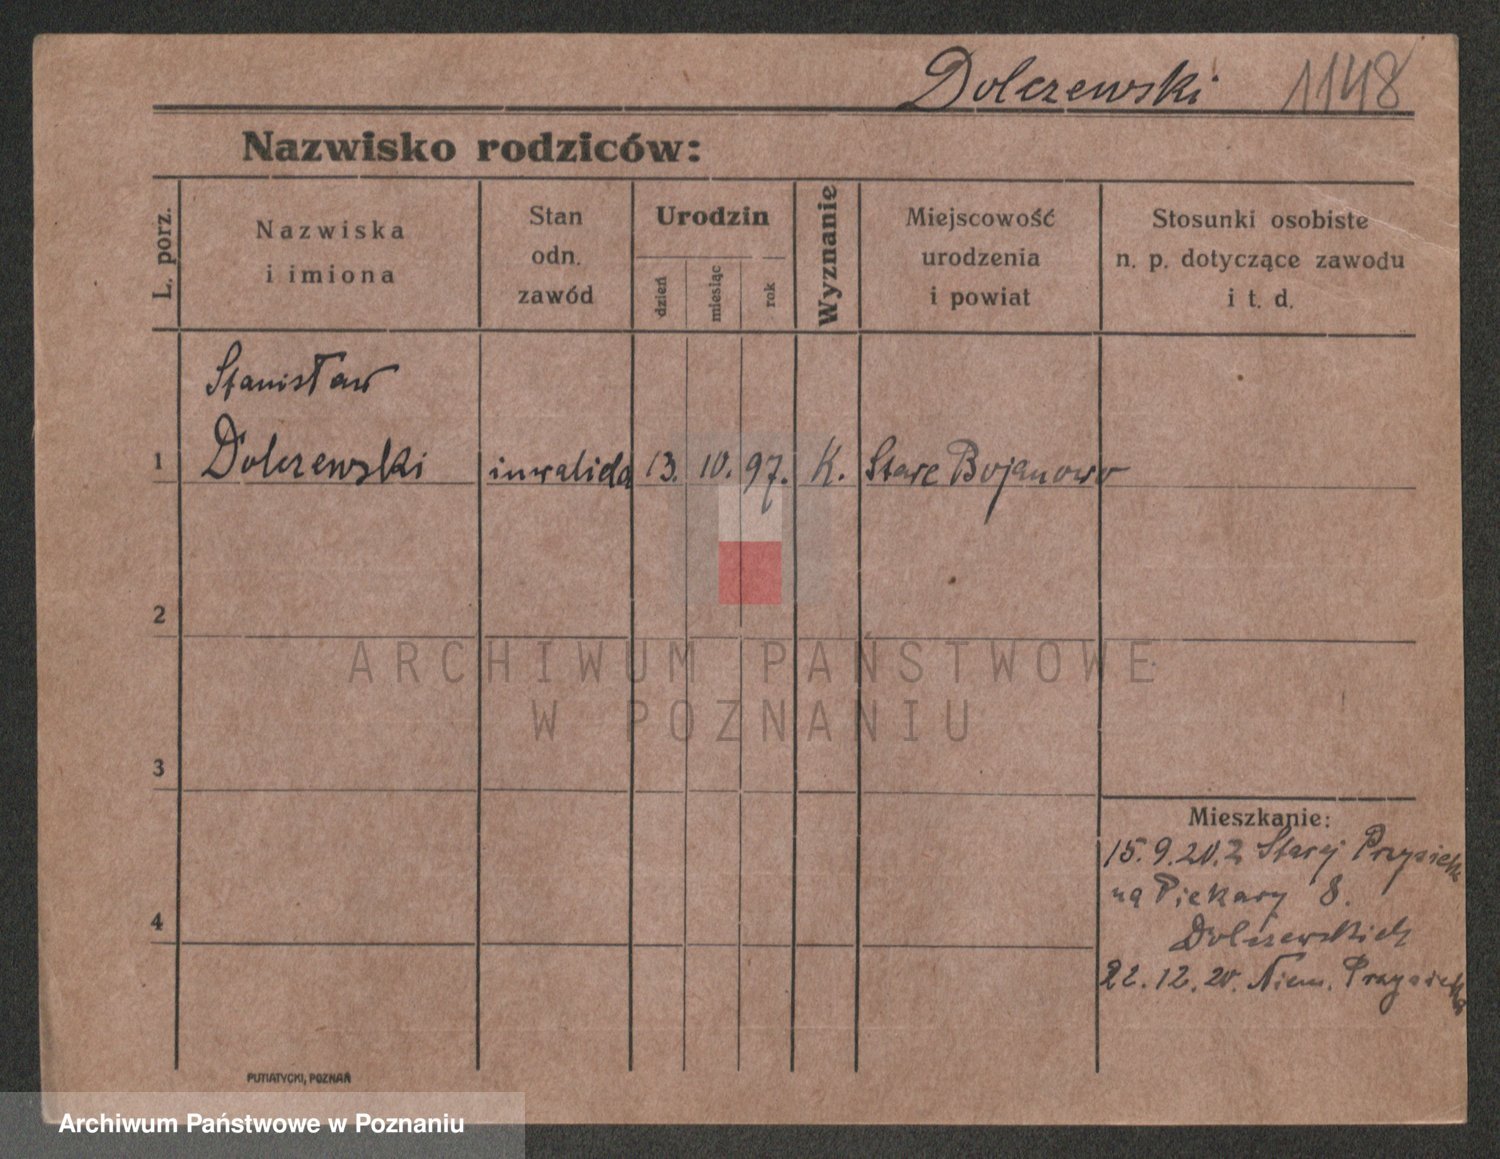 Dolczewski 1148
Nazwisko rodziców:
L. porz.
Nazwiska
i imiona
Stan
odn.
zawód
Urodzin
dzień
miesiąc
rok
Wyznanie
Miejscowość
urodzenia
i powiat
Stosunki osobiste
n. p. dotyczące zawodu
i t. d.
Stanisław
1 Dolczewski inwalida 13. 10. 97. K. Stare Bojanowo
2
ARCHIWUM PAŃSTWOWE
W POZNANIU
3
4
Mieszkanie:
15.9.20. z Starej Przysieki
na Piekary 8.
Dolczewskich
22.12.20. Niem. Przysieka
PUTIATYCKI, POZNAŃ
Archiwum Państwowe w Poznaniu